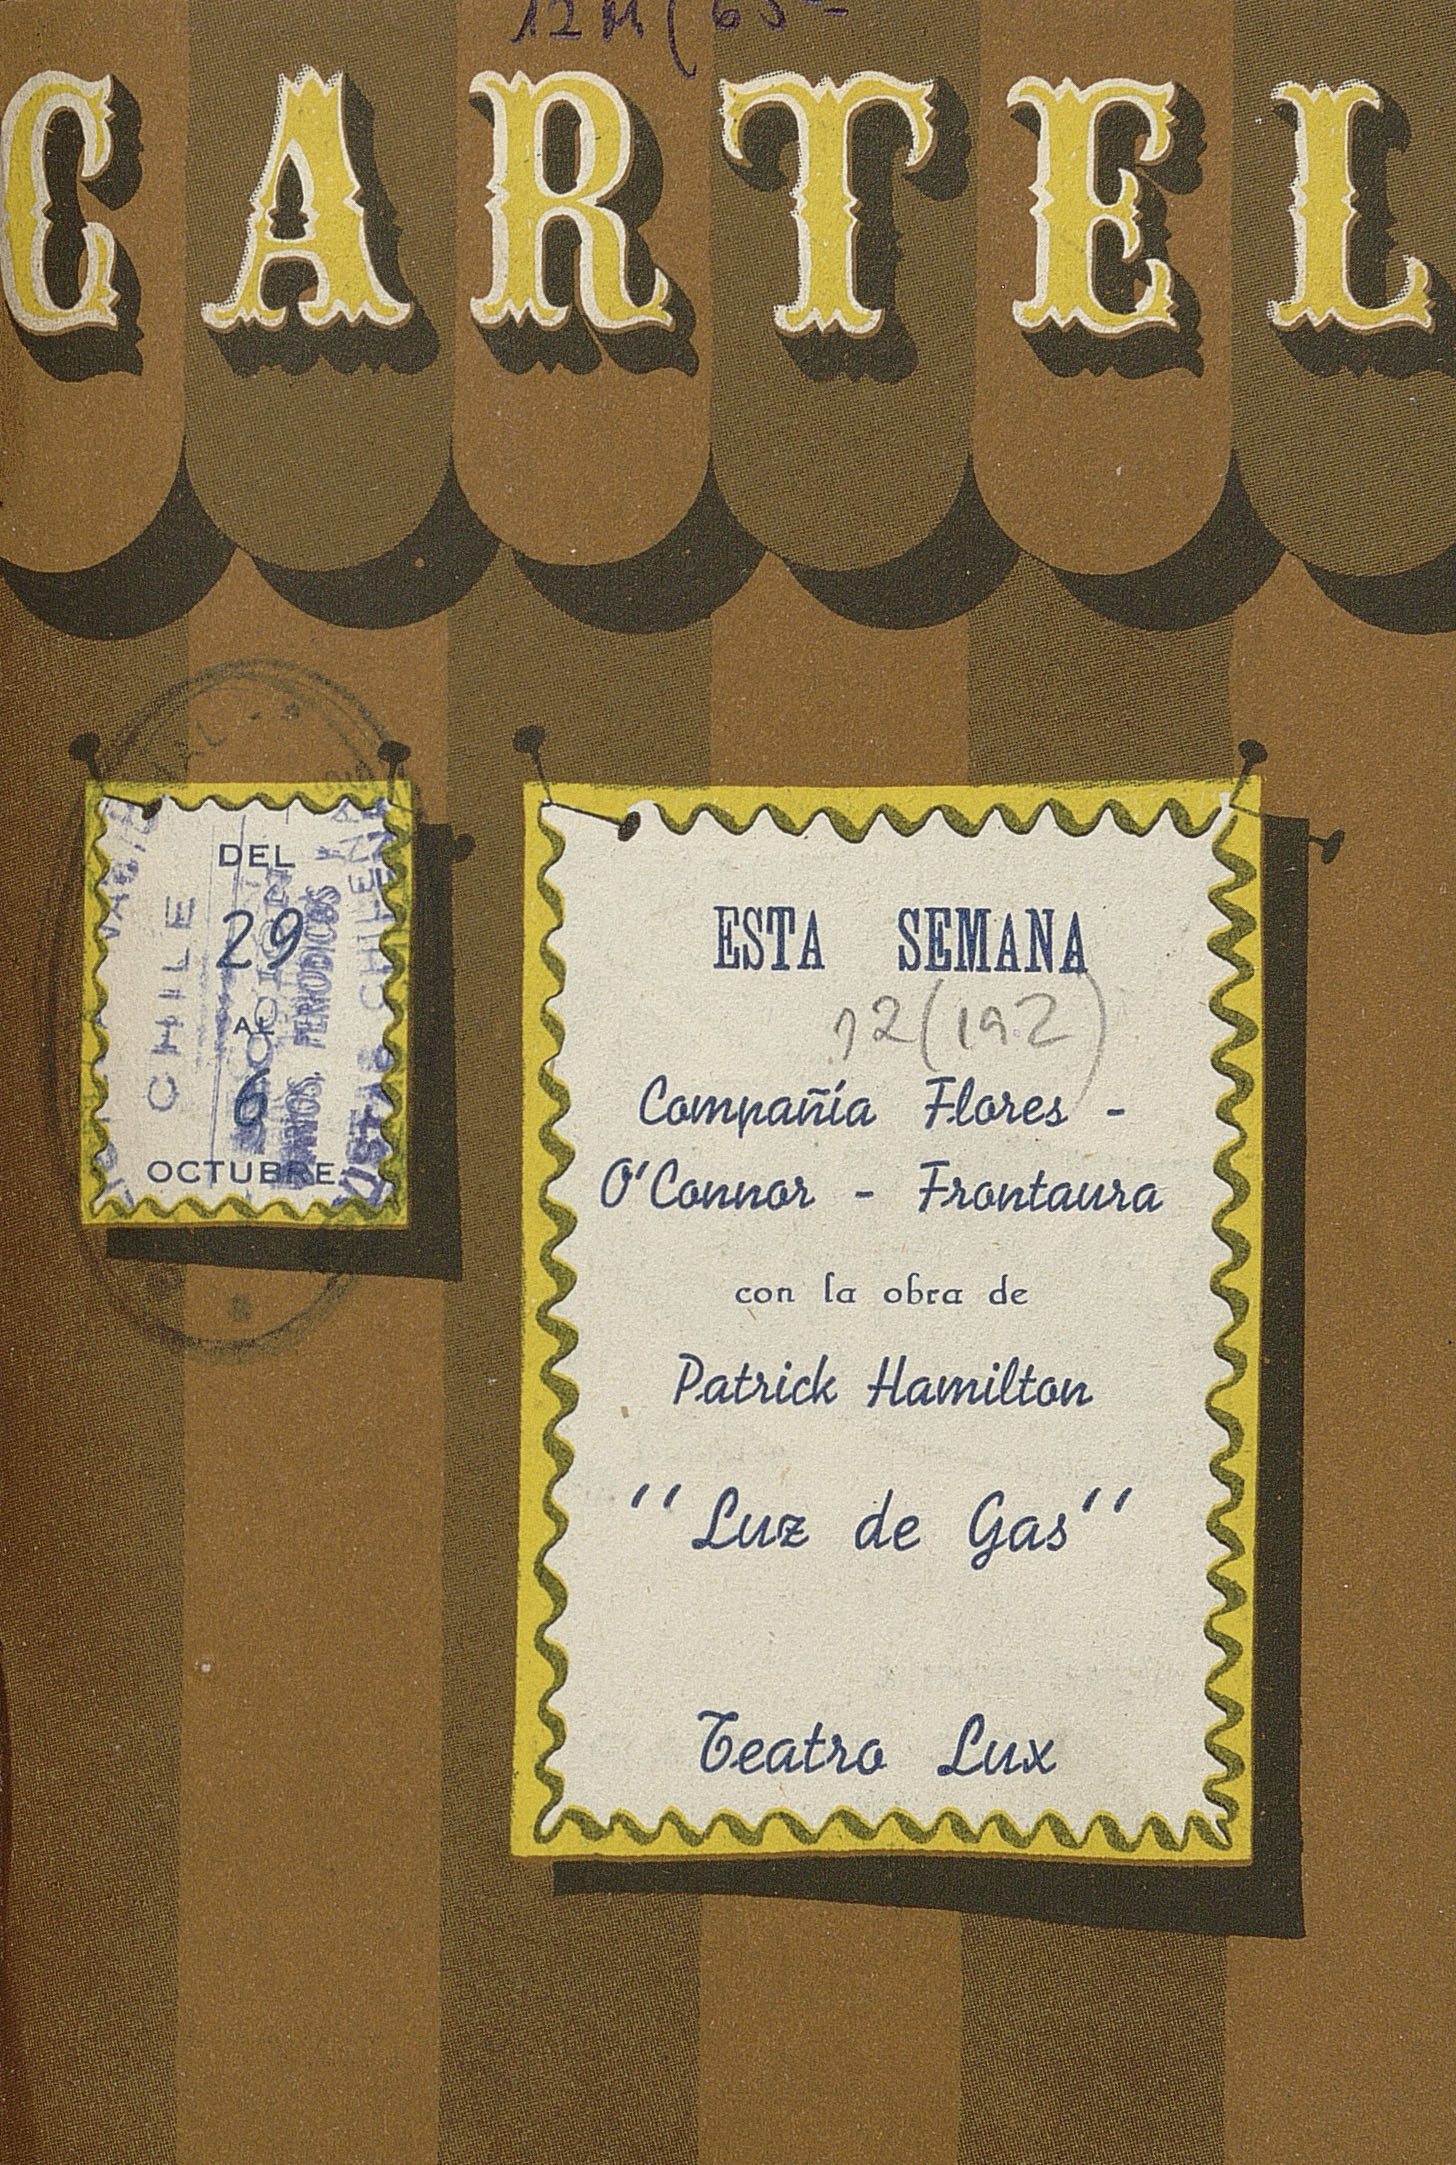 CARTEL
DEL
29
AL
6
OCTUBRE
CHILE
PERIODICOS
ESTA SEMANA
12(192)
Compañía Flores -
O'Connor - Frontaura
con la obra de
Patrick Hamilton
"Luz de Gas"
Teatro Lux